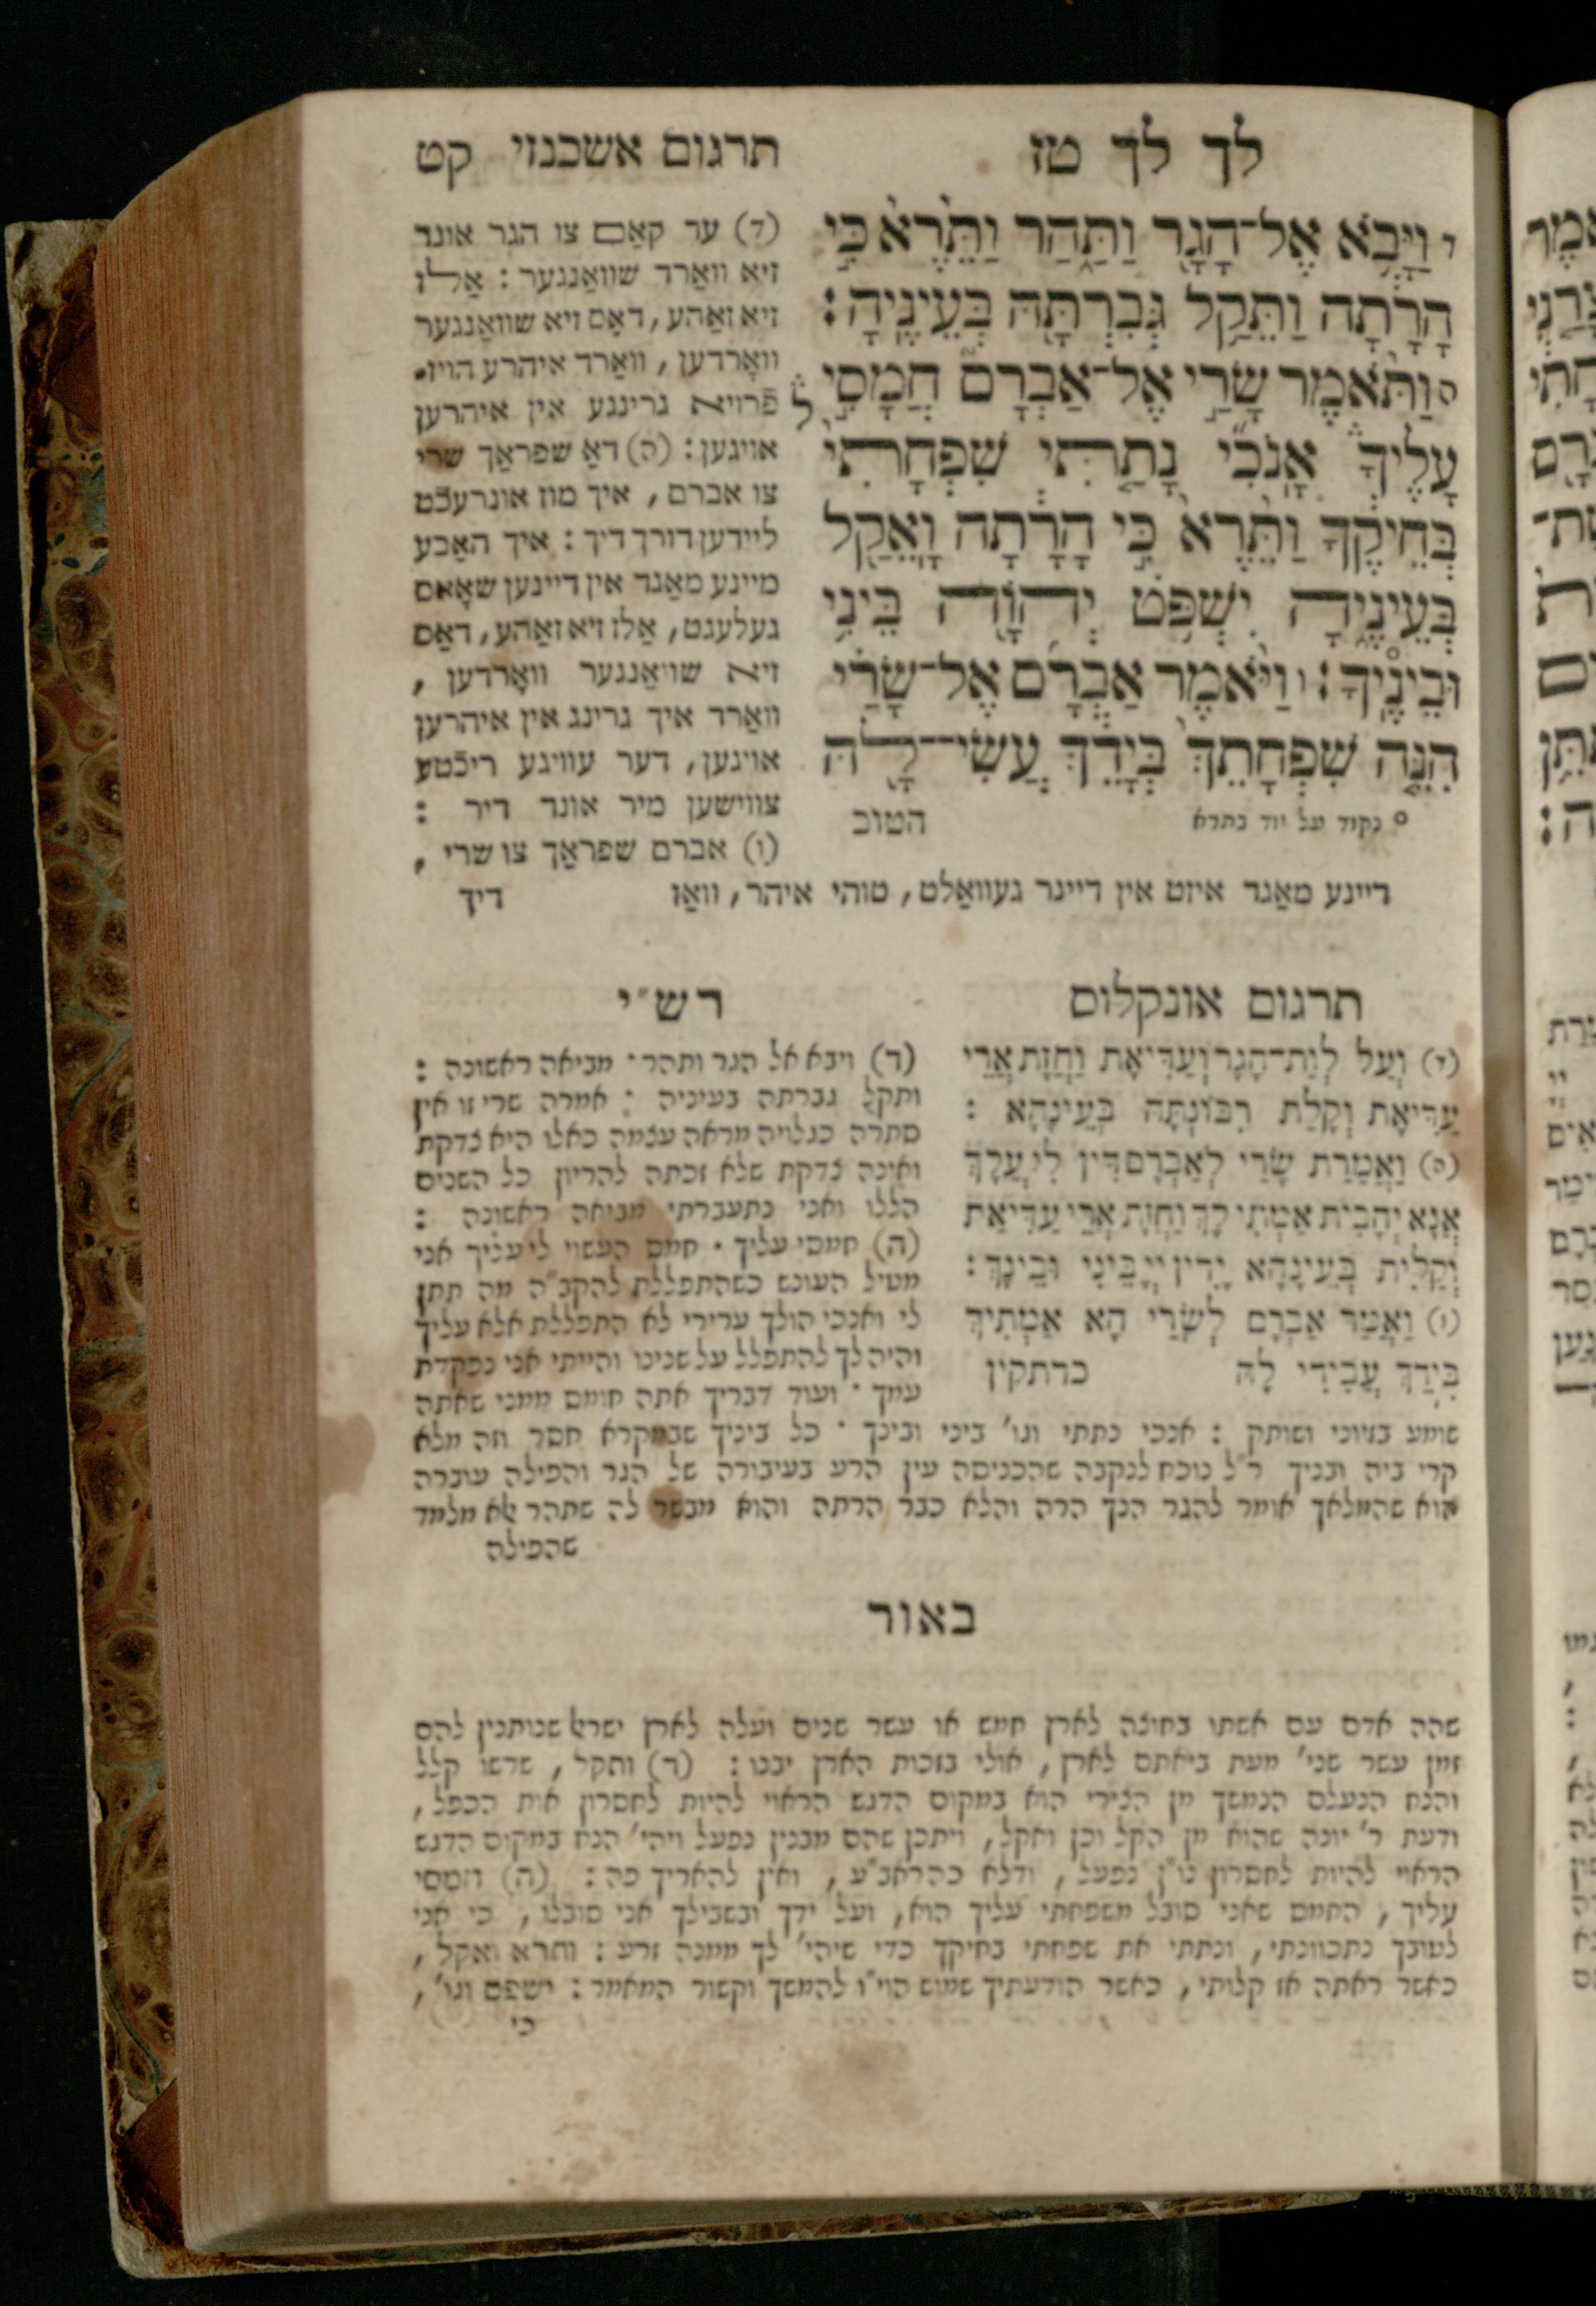 לך לך טז
תרגום אשכנזי קט
ד וַיָּבֹ֥א אֶל־הָגָ֖ר וַתַּ֑הַר וַתֵּ֙רֶא֙ כִּ֣י
הָרָ֔תָה וַתֵּקַ֥ל גְּבִרְתָּ֖הּ בְּעֵינֶֽיהָ׃
ה וַתֹּ֨אמֶר שָׂרַ֣י אֶל־אַבְרָם֮ חֲמָסִ֣י
עָלֶיךָ֒ אָנֹכִ֗י נָתַ֤תִּי שִׁפְחָתִי֙
בְּחֵיקֶ֔ךָ וַתֵּ֙רֶא֙ כִּ֣י הָרָ֔תָה וָאֵקַ֖ל
בְּעֵינֶ֑יהָ יִשְׁפֹּ֥ט יְהוָ֖ה בֵּינִ֥י
וּבֵינֶֽיךָ׃ ו וַיֹּ֨אמֶר אַבְרָ֜ם אֶל־שָׂרַ֗י
הִנֵּ֤ה שִׁפְחָתֵךְ֙ בְּיָדֵ֔ךְ עֲשִׂי־לָ֖הּ
° נקוד על יוד בתרא
הטוב
(ד) ער קאַם צו הגר אונד
זיא וואַרד שוואַנגער : אַלז
זיא זאַהע, דאַס זיא שוואַנגער
וואָרדען , וואַרד איהרע הויז־
פֿרויא גרינגע אין איהרען
אויגען : (ה) דאַ שפראַך שרי
צו אברם , איך מוז אונרעכֿט
ליידען דורך דיך : איך האַבע
מיינע מאַגד אין דיינען שאָאס
געלעגט, אַלז זיא זאַהע, דאַס
זיא שוואַנגער וואָרדען ,
וואַרד איך גרינג אין איהרען
אויגען, דער עוויגע ריכֿטע
צווישען מיר אונד דיר :
(ו) אברם שפראַך צו שרי ,
דיינע מאַגד איזט אין דיינר געוואַלט, טוהי איהר, וואַז
דיך
תרגום אונקלוס
(ד) וְעַל לְוַת־הָגָר וְעַדִּיאַת וַחֲזָת אֲרֵי
עַדִּיאַת וְקָלַת רִבּוֹנְתָּהּ בְּעֵינָהָא :
(ה) וַאֲמָרַת שָׂרַי לְאַבְרָם דִּין לִי עֲלָךְ
אֲנָא יְהָבִית אַמְתִי לָךְ וַחֲזָת אֲרֵי עַדִּיאַת
וְקַלִּית בְּעֵינָהָא יָדִין יְיָ בֵּינִי וּבֵינָךְ :
(ו) וַאֲמַר אַבְרָם לְשָׂרַי הָא אַמְתִיךְ
בִּידֵךְ עֲבִידִי לָהּ
כדתקין
רש״י
(ד) ויבא אל הגר ותהר · מביאה ראשונה :
ותקל גברתה בעיניה : אמרה שרי זו אין
סתרה כגלויה מראה עצמה כאלו היא צדקת
ואינה צדקת שלא זכתה להריון כל השנים
הללו ואני נתעברתי מביאה ראשונה :
(ה) חמסי עליך · חמס העשוי לי עליך אני
מטיל העונש כשהתפללת להקב״ה מה תתן
לי ואנכי הולך ערירי לא התפללת אלא עליך
והיה לך להתפלל על שנינו והייתי אני נפקדת
עמך · ועוד דבריך אתה חומס ממני שאתה
שומע בזיוני ושותק : אנכי נתתי וגו׳ ביני ובינך · כל ביניך שבמקרא חסר וזה מלא
קרי ביה ובניך ר״ל נוכח לנקבה שהכניסה עין הרע בעיבורה של הגר והפילה עוברה
הוא שהמלאך אומר להגר הנך הרה והלא כבר הרתה והוא מבשר לה שתהר אלא מלמד
שהפילה
באור
שהה אדם עם אשתו בחוצה לארץ חמש או עשר שנים ועלה לארץ ישראל שנותנין להם
זמן עשר שני׳ מעת ביאתם לארץ, אולי בזכות הארץ יבנו : (ד) ותקל, שרשו קלל
והנח הנעלם הנמשך מן הצירי הוא במקום הדגש הראוי להיות לחסרון אות הכפל,
ודעת ר׳ יונה שהוא מן הקל וכן ואקל, ויתכן שהם מבנין נפעל ויהי׳ הנח במקום הדגש
הראוי להיות לחסרון נו״ן נפעל, ודלא כהראב״ע, ואין להאריך פה : (ה) חמסי
עליך, החמס שאני סובל משפחתי עליך הוא, ועל ידך ובשבילך אני סובלו, כי אני
לטובך נתכוונתי, ונתתי את שפחתי בחיקך כדי שיהי׳ לך ממנה זרע : ותרא ואקל,
כאשר ראתה אז קלותי, כאשר הודעתיך שמוש הוי״ו להמשך וקשור המאמר : ישפט וגו׳,
כי